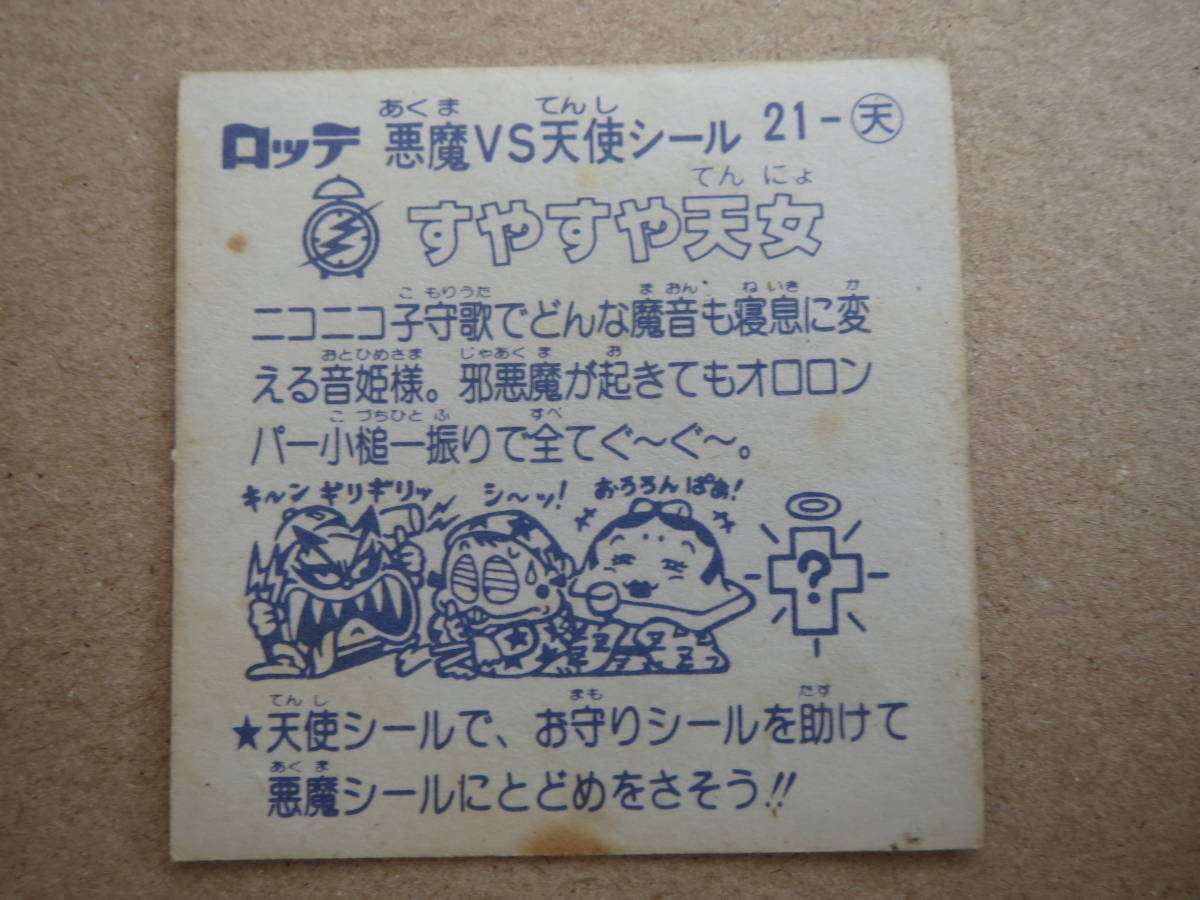 ロッテ 悪魔VS天使シール 21-天
あくま てんし
すやすや天女
てんにょ
ニコニコ子守歌でどんな魔音も寝息に変
こもりうた まおん ねいき か
える音姫様。邪悪魔が起きてもオロロン
おとひめさま じゃあくま お
パー小槌一振りで全てぐ〜ぐ〜。
こづちひとふ すべ
キルン ギリギリッ シ〜ッ! おろろんぱぁ!
?
★天使シールで、お守りシールを助けて
てんし まも たす
悪魔シールにとどめをさそう!!
あくま